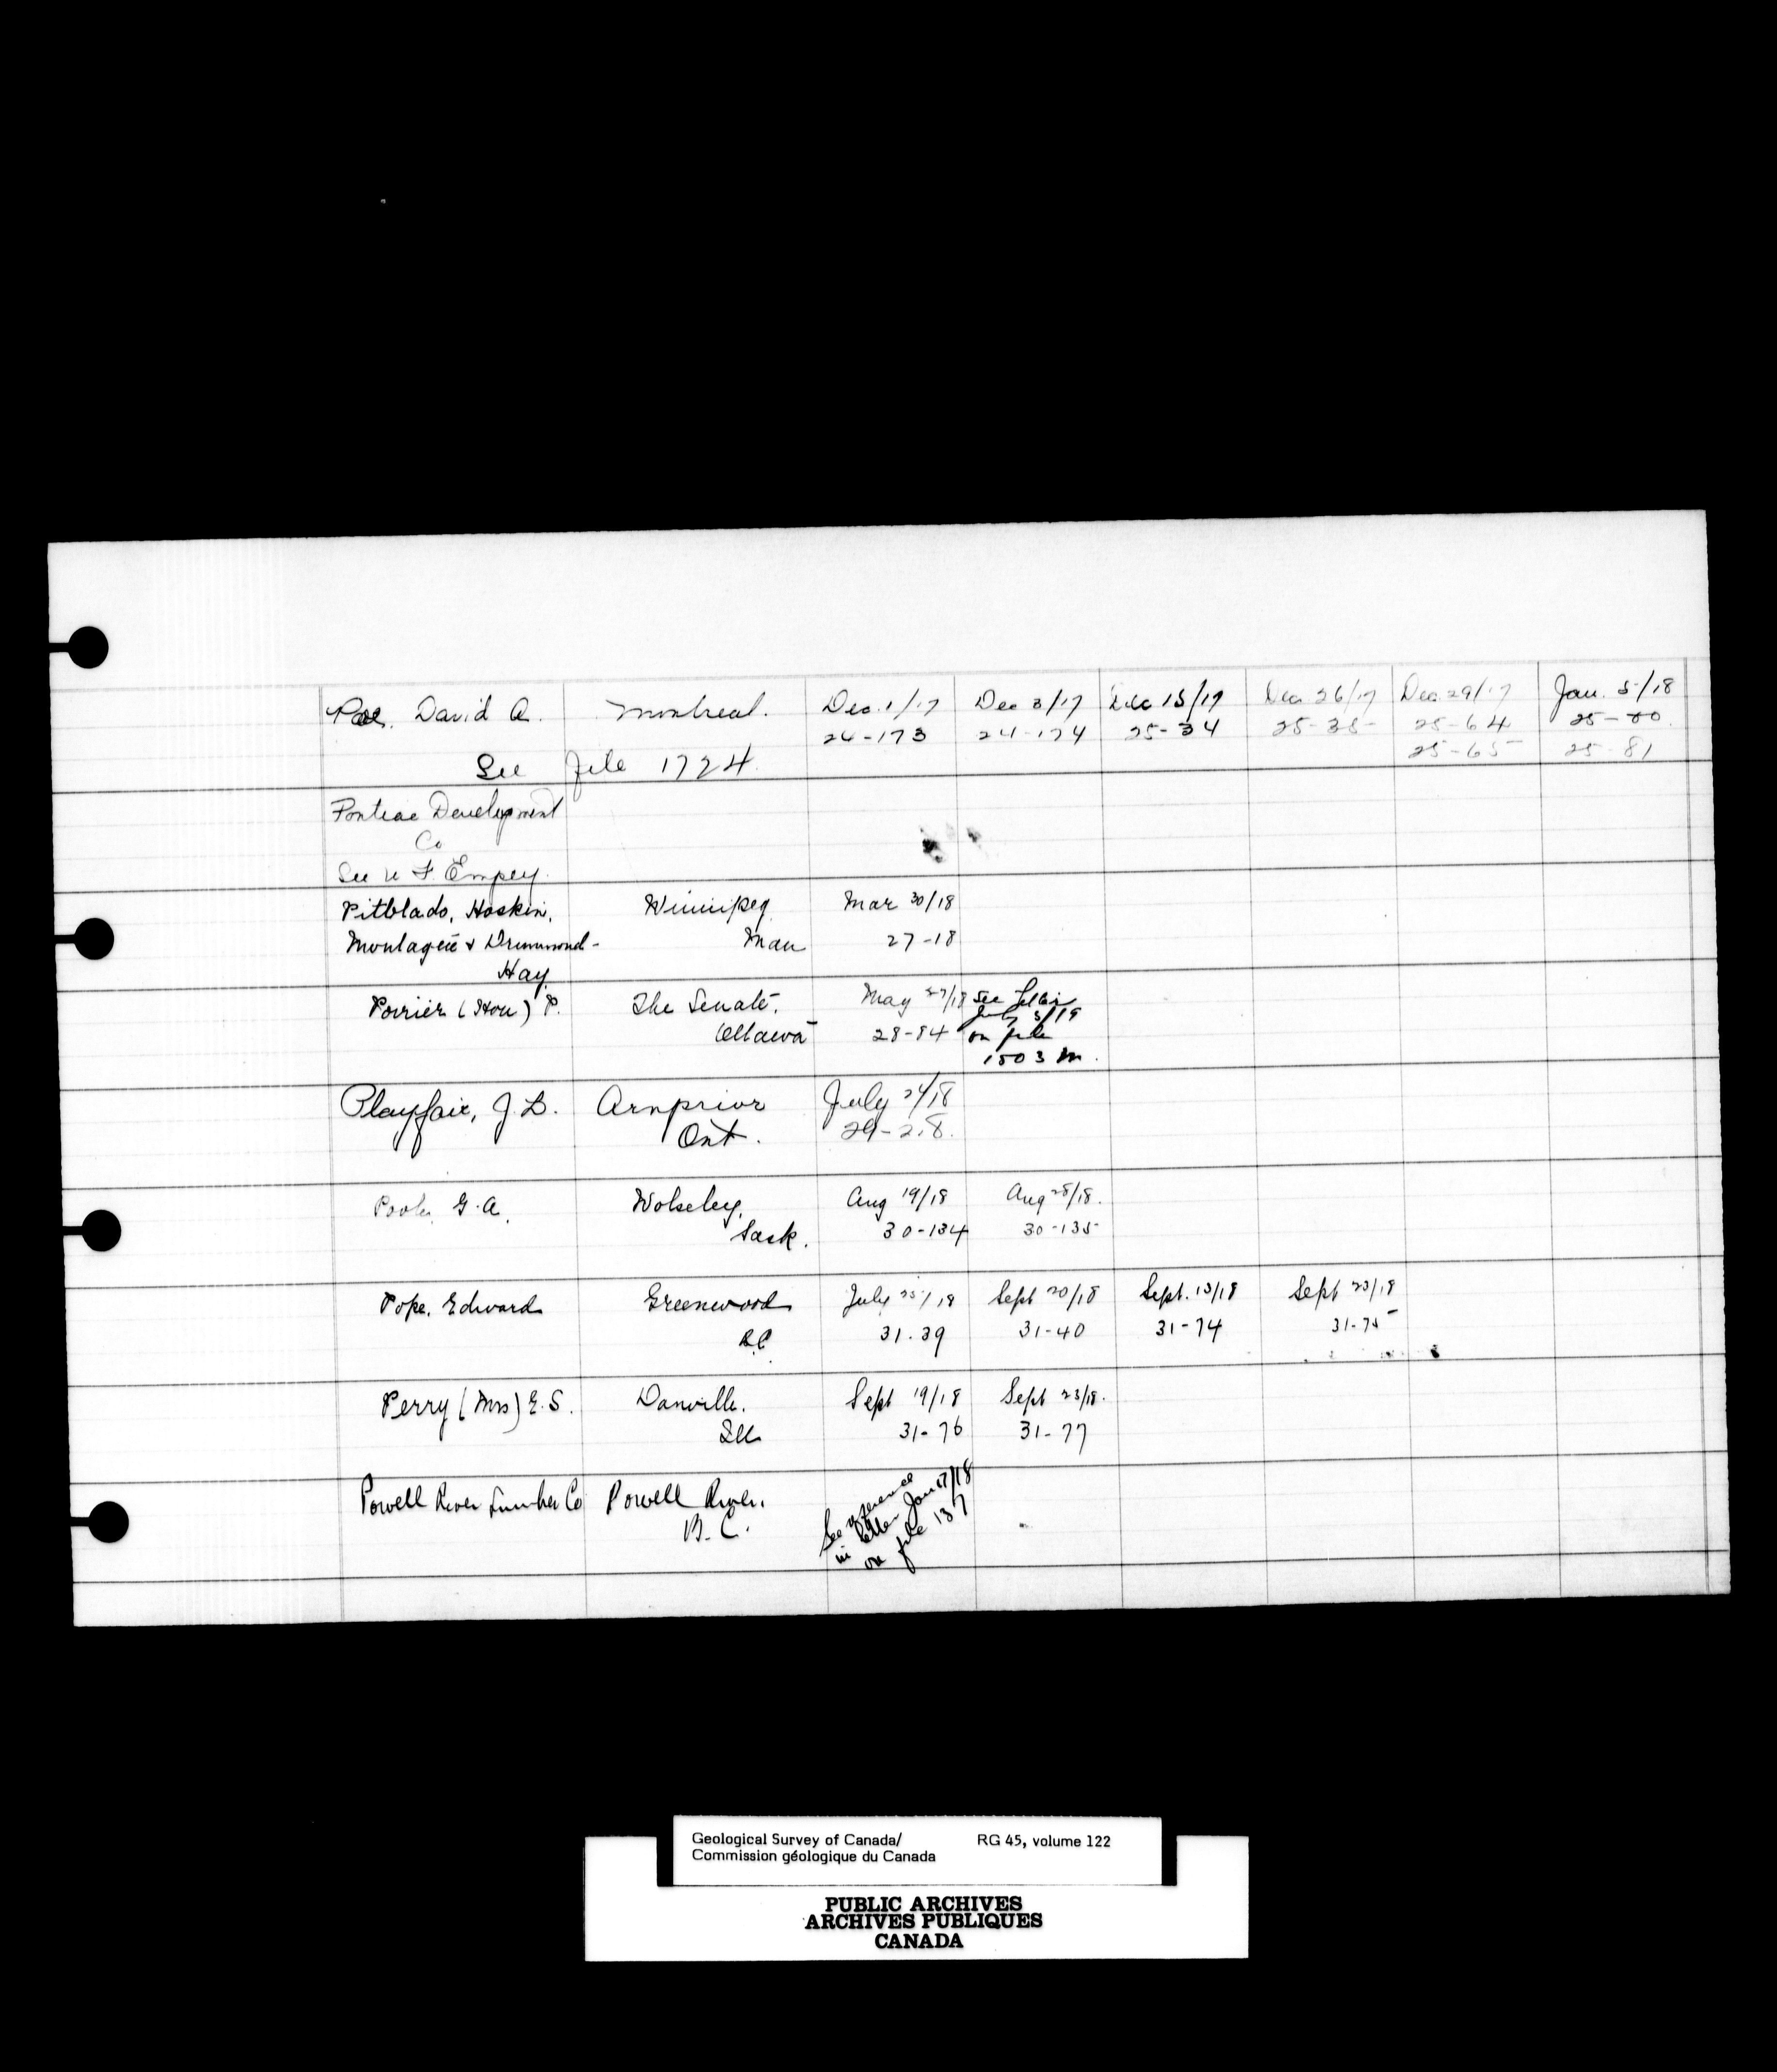 Poe. David A. Montreal. Dec. 1/17 Dec 3/17 Dec 15/17 Dec 26/17 Dec 29/17 Jan. 5/18
24-173 24-174 25-34 25-35 25-64 25-80
See file 1724. 25-65 25-81
Pontiac Development
Co
See F. Empey.
Pitblado, Hoskin, Winnipeg Mar 30/18
Montague & Drummond- Man 27-18
Hay
Poirier (Hon) P. The Senate, May 27/18 See letter
July 3/19
Ottawa 28-84 on file
1503 M.
Playfair, J.D. Arnprior July 24/18
Ont. 29-28.
Poole, G.A. Wolseley, Aug 19/18 Aug 28/18.
Sask. 30-134 30-135
Pope, Edward Greenwood July 25/18 Sept 20/18 Sept. 13/18 Sept 23/18
B.C. 31-39 31-40 31-74 31-75
Perry (Mrs) E.S. Danville. Sept 19/18 Sept 23/18.
Ill 31-76 31-77
Powell River Lumber Co Powell River, See reference
B.C. in letter Jan 17/18
on file 137
Geological Survey of Canada/ RG 45, volume 122
Commission géologique du Canada
PUBLIC ARCHIVES
ARCHIVES PUBLIQUES
CANADA